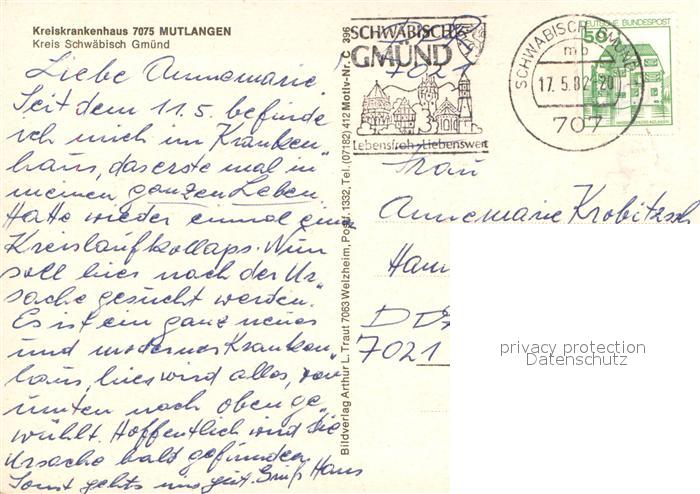 Kreiskrankenhaus 7075 MUTLANGEN
Kreis Schwäbisch Gmünd
Liebe Annemarie!
Seit dem 11.5. befinde
ich mich im Kranken"
haus, das erste mal in
meinen ganzen Leben.
Hatte wieder einmal einen
Kreislaufkollaps. Nun
soll hier nach der Ur"
sache gesucht werden.
Es ist ein ganz neues
und modernes Kranken"
haus, hier wird alles, von
unten nach oben ge"
wühlt. Hoffentlich wird die
Ursache bald gefunden.
Sonst gehts uns gut. Gruß Hans
Bildverlag Arthur L. Traut 7063 Welzheim, Postf. 1332, Tel. (07182) 412 Motiv-Nr. C 396
SCHWÄBISCH
GMÜND
Lebensfroh-Liebenswert
SCHWÄBISCH GMÜND 1
mb
17.5.82-20
707
DEUTSCHE BUNDESPOST
50
7021
Frau
Annemarie Krobitzsch
Ham
DD
7021
privacy protection
Datenschutz